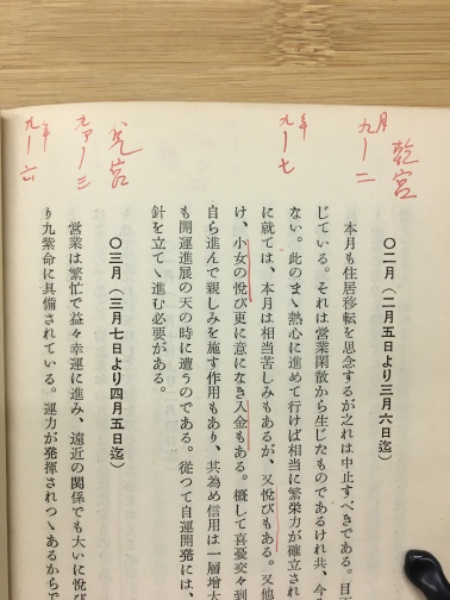 乾宮
九月
九ー二
九年
九ー七
○二月（二月五日より三月六日迄）
本月も住居移転を思念するが之れは中止すべきである。目下
じている。それは営業閑散から生じたものであるけれ共、今
ない。此のまゝ熱心に進めて行けば相当に繁栄力が確立され
に就ては、本月は相当苦しみもあるが、又悦びもある。又他
け、小女の悦び更に意になき入金もある。概して喜憂交々到
自ら進んで親しみを施す作用もあり、共為め信用は一層増大
も開運進展の天の時に遭うのである。従つて自運開発には、
針を立てゝ進む必要がある。
兌宮
九ー三
九年
九ー六
○三月（三月七日より四月五日迄）
営業は繁忙で益々幸運に進み、遠近の関係でも大いに悦び
り九紫命に具備されている。運力が発揮されつゝあるからで